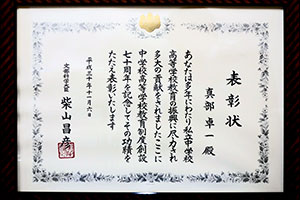 表彰状
真部卓一殿
あなたは多年にわたり私立中学校
高等学校教育の振興に尽力され
多大の貢献をされましたここに
中学校高等学校教育制度創設
七十周年を記念してその功績を
たたえ表彰いたします
平成三十年十一月六日
文部科学大臣
柴山昌彦